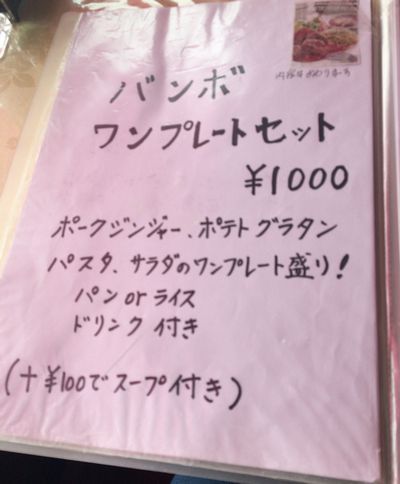 バンボ
ワンプレートセット
¥1000
ポークジンジャー、ポテトグラタン
パスタ、サラダのワンプレート盛り!
パン or ライス
ドリンク付き
(+¥100でスープ付き)